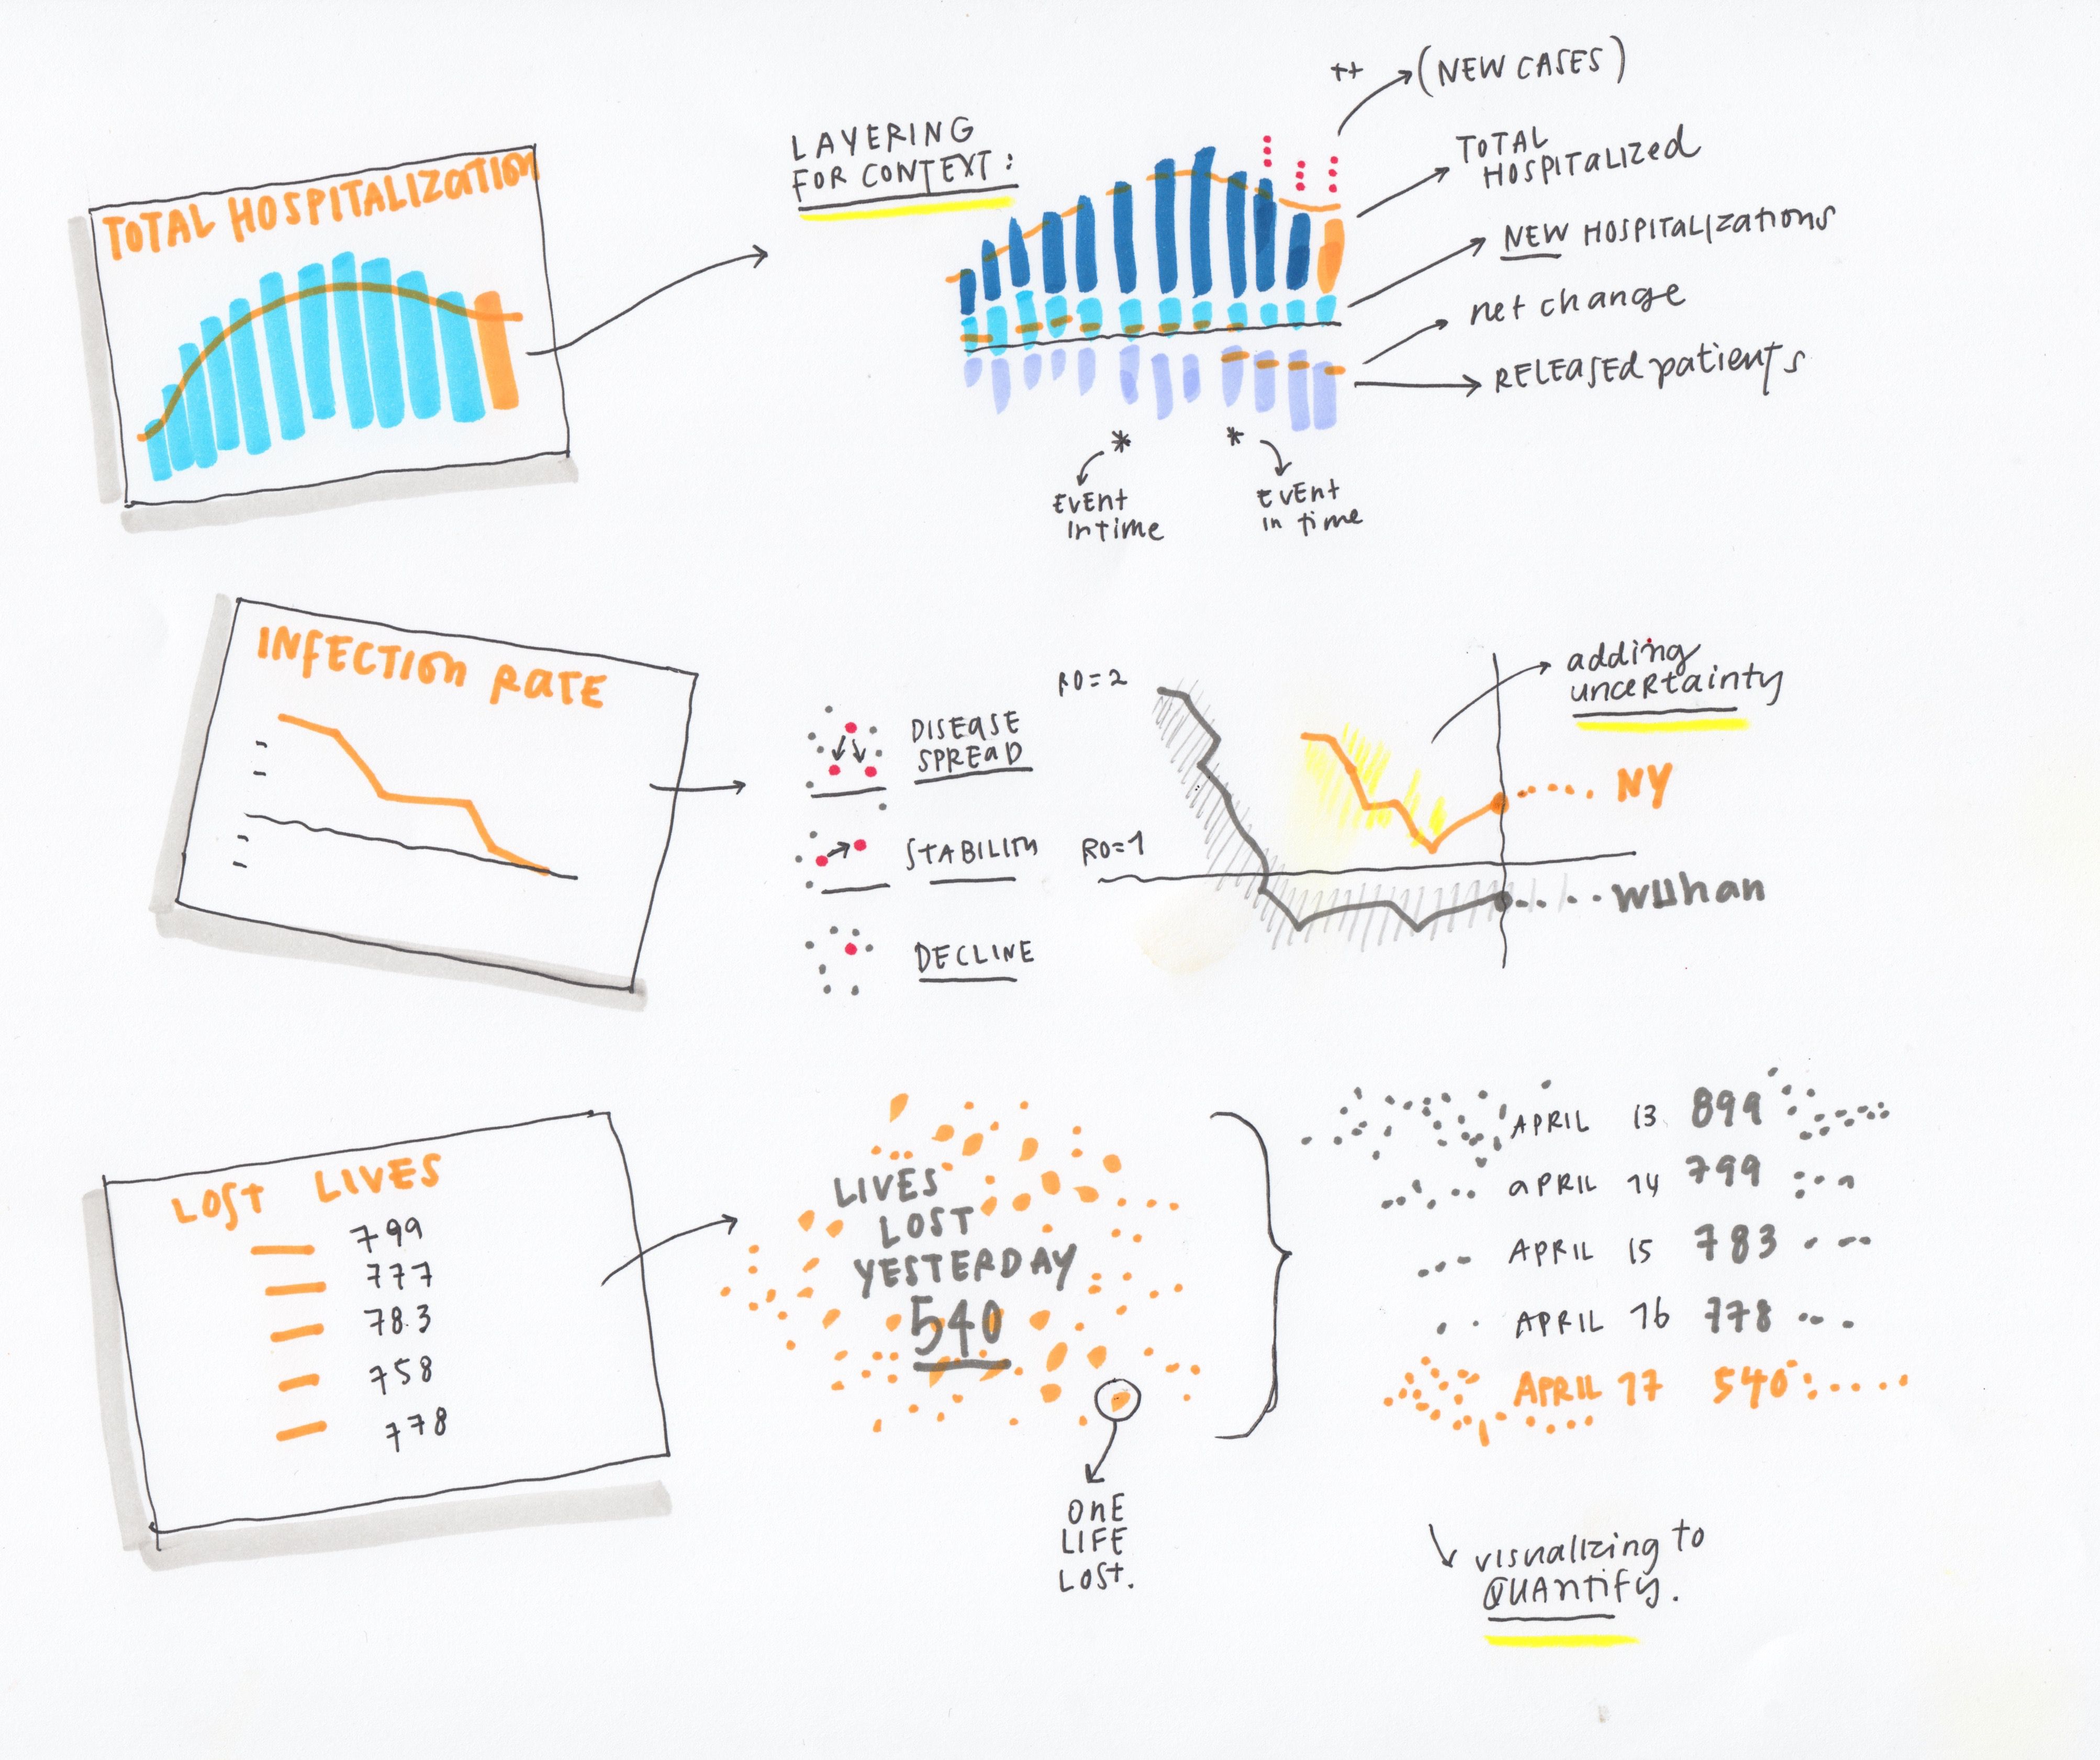 TOTAL HOSPITALIZATION
LAYERING
FOR CONTEXT:
++
(NEW CASES)
TOTAL
HOSPITALIZED
NEW HOSPITALIZATIONS
net change
RELEASED patients
*
*
EVENT
IN TIME
EVENT
IN TIME
INFECTION RATE
DISEASE
SPREAD
STABILITY
DECLINE
R0=2
R0=1
adding
uncertainty
NY
WUHAN
LOST LIVES
799
777
78.3
758
778
LIVES
LOST
YESTERDAY
540
ONE
LIFE
LOST.
APRIL 13 899
APRIL 14 799
APRIL 15 783
APRIL 16 778
APRIL 17 540
visualizing to
QUANTIFY.